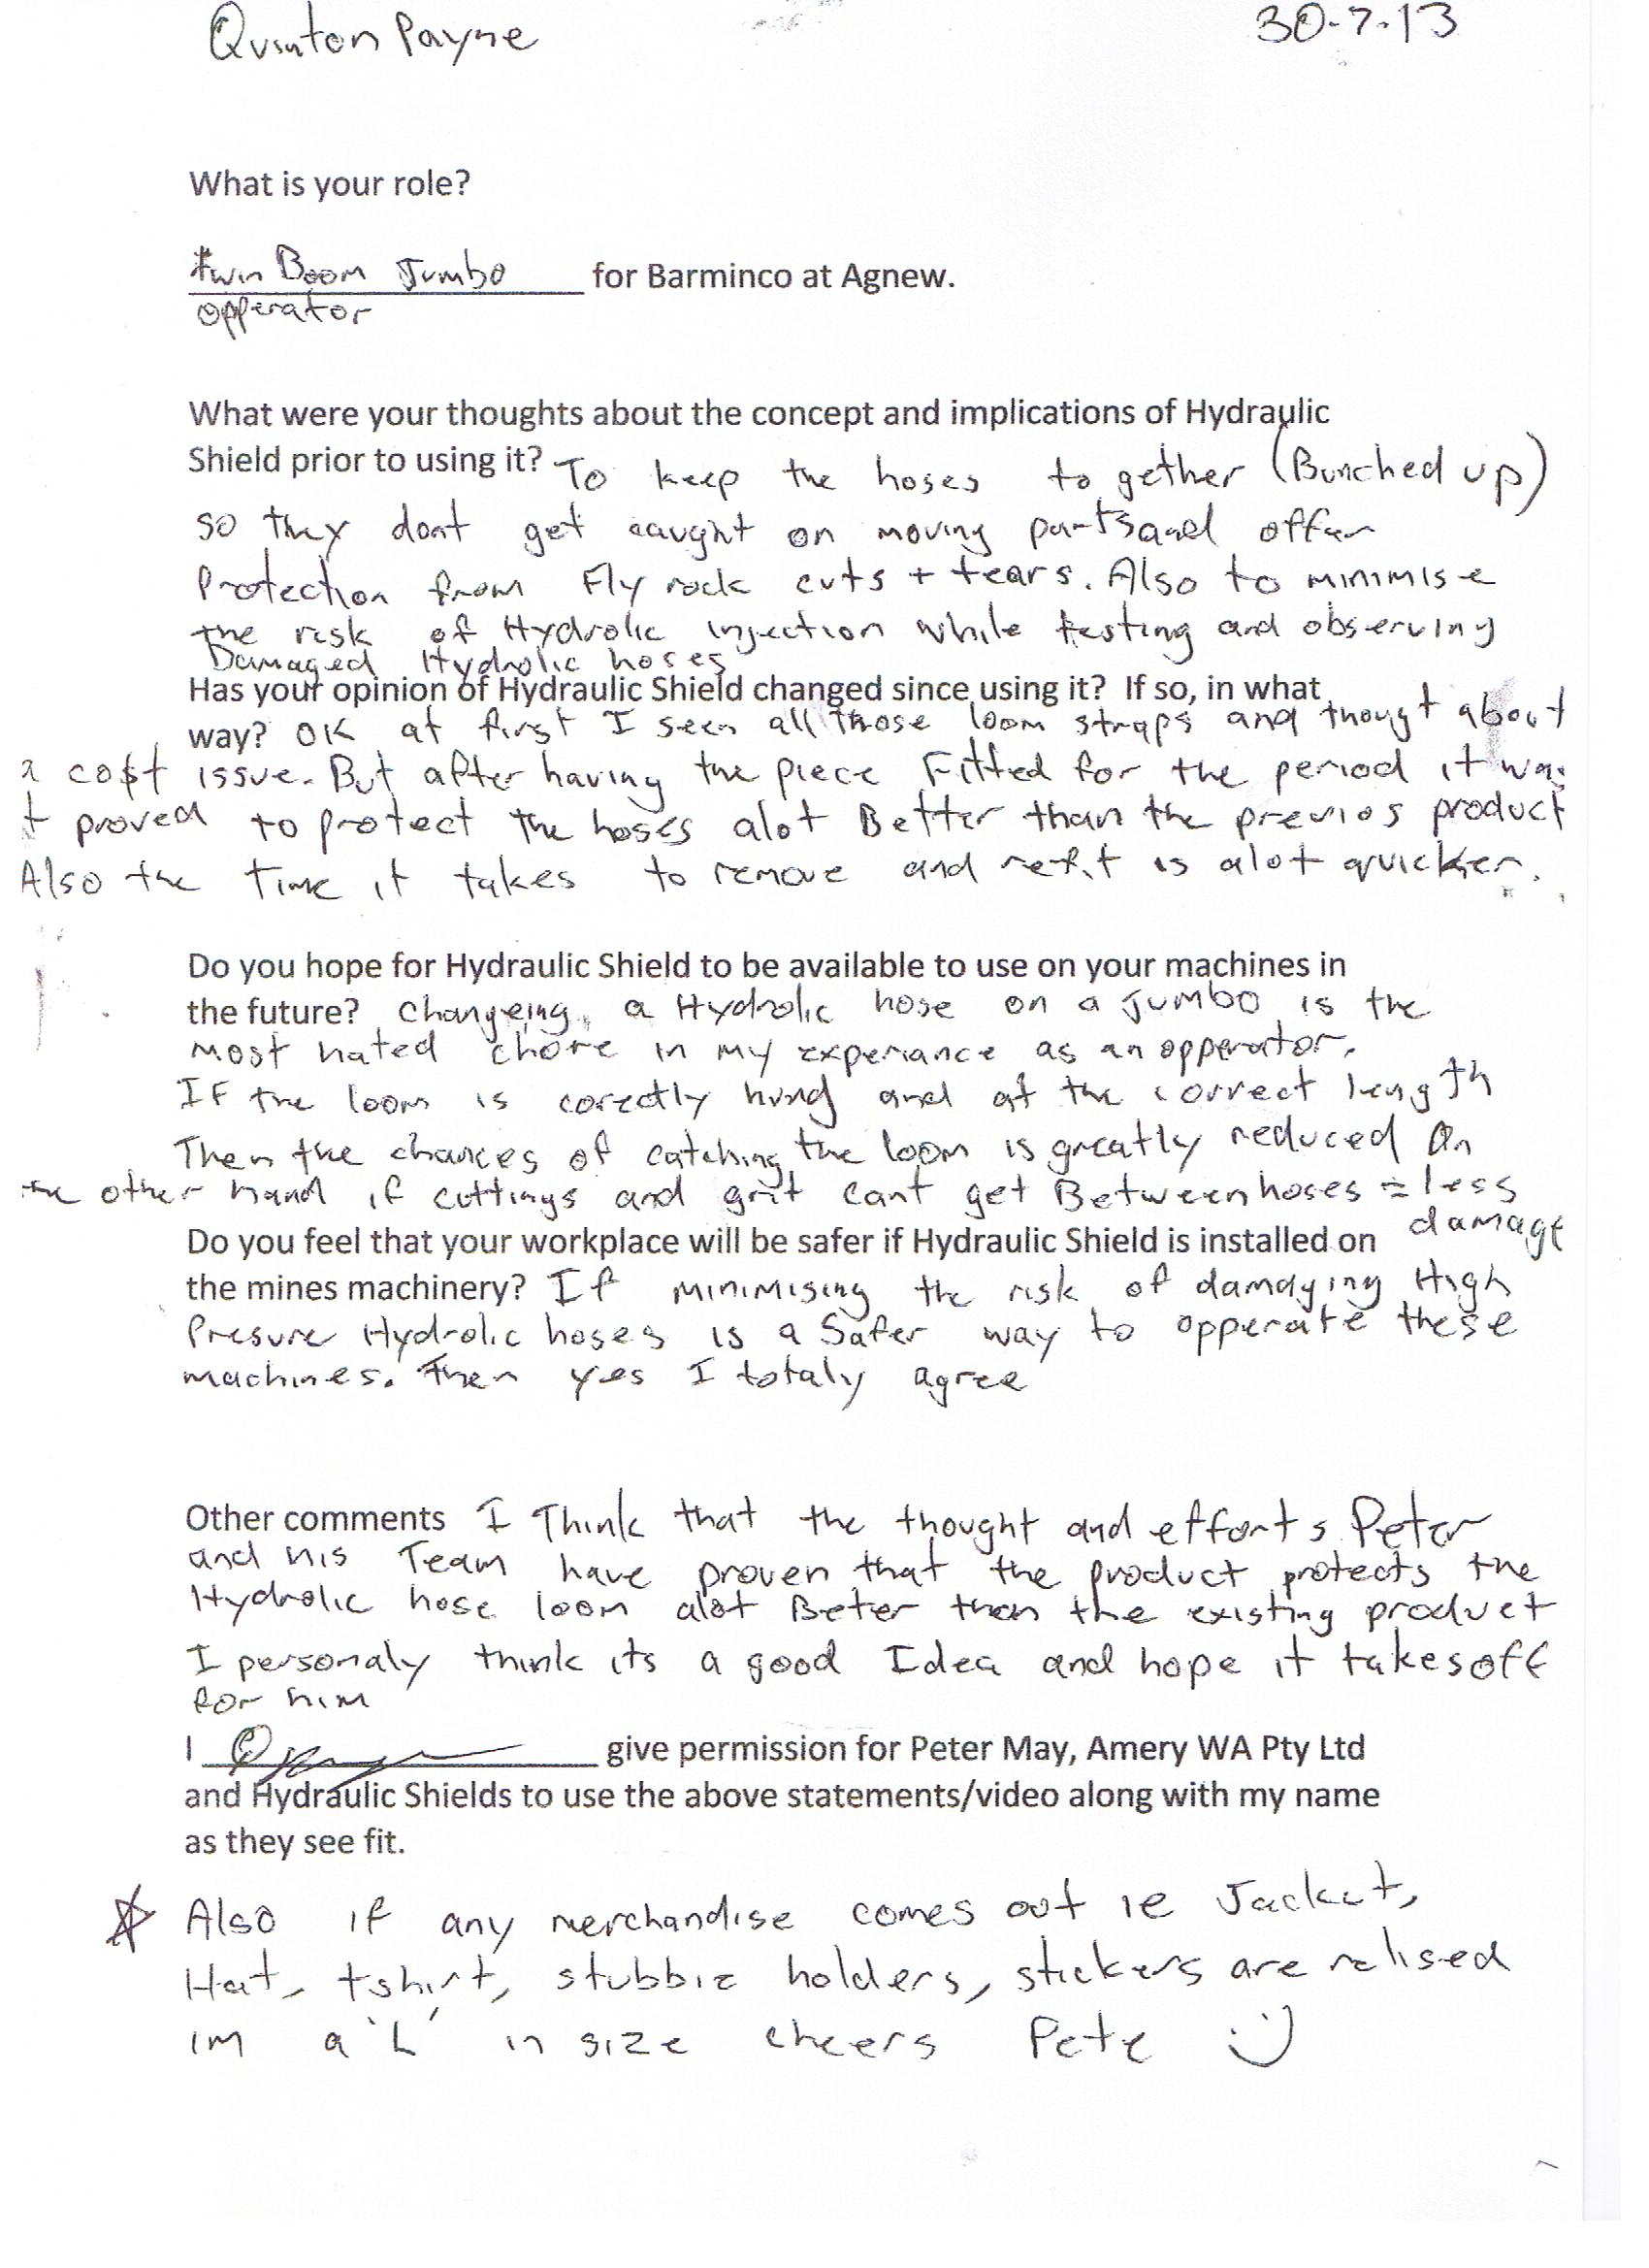 Quinton Payne 30-7-13
What is your role?
twin Boom Jumbo for Barminco at Agnew.
opperator
What were your thoughts about the concept and implications of Hydraulic
Shield prior to using it? To keep the hoses to gether (Bunched up)
so they dont get caught on moving parts and offer
Protection from Fly rock cuts + tears. Also to minimise
the risk of Hydrolic injection while testing and observing
Damaged Hydrolic hoses
Has your opinion of Hydraulic Shield changed since using it? If so, in what
way? OK at first I seen all those loom straps and thougt about
a cost issue. But after having the piece Fitted for the period it was
it proved to protect the hoses alot Better than the previos product
Also the time it takes to remove and refit is alot quicker.
Do you hope for Hydraulic Shield to be available to use on your machines in
the future? Changeing a Hydrolic hose on a Jumbo is the
most hated chore in my experiance as an opperator.
If the loom is corectly hung and at the correct length
Then the chances of catching the loom is greatly reduced On
the other hand if cuttings and grit cant get Between hoses = less
damage
Do you feel that your workplace will be safer if Hydraulic Shield is installed on
the mines machinery? If minimising the risk of damaging High
Presure Hydrolic hoses is a Safer way to opperate these
machines. Then yes I totaly agree
Other comments I Think that the thought and efforts Peter
and his Team have proven that the product protects the
Hydrolic hose loom alot Beter then the existing product
I personaly think its a good Idea and hope it takes off
for him
I give permission for Peter May, Amery WA Pty Ltd
and Hydraulic Shields to use the above statements/video along with my name
as they see fit.
☆ Also if any merchandise comes out ie Jacket,
Hat, tshirt, stubbie holders, stickers are relised
im a 'L' in size cheers Pete :)